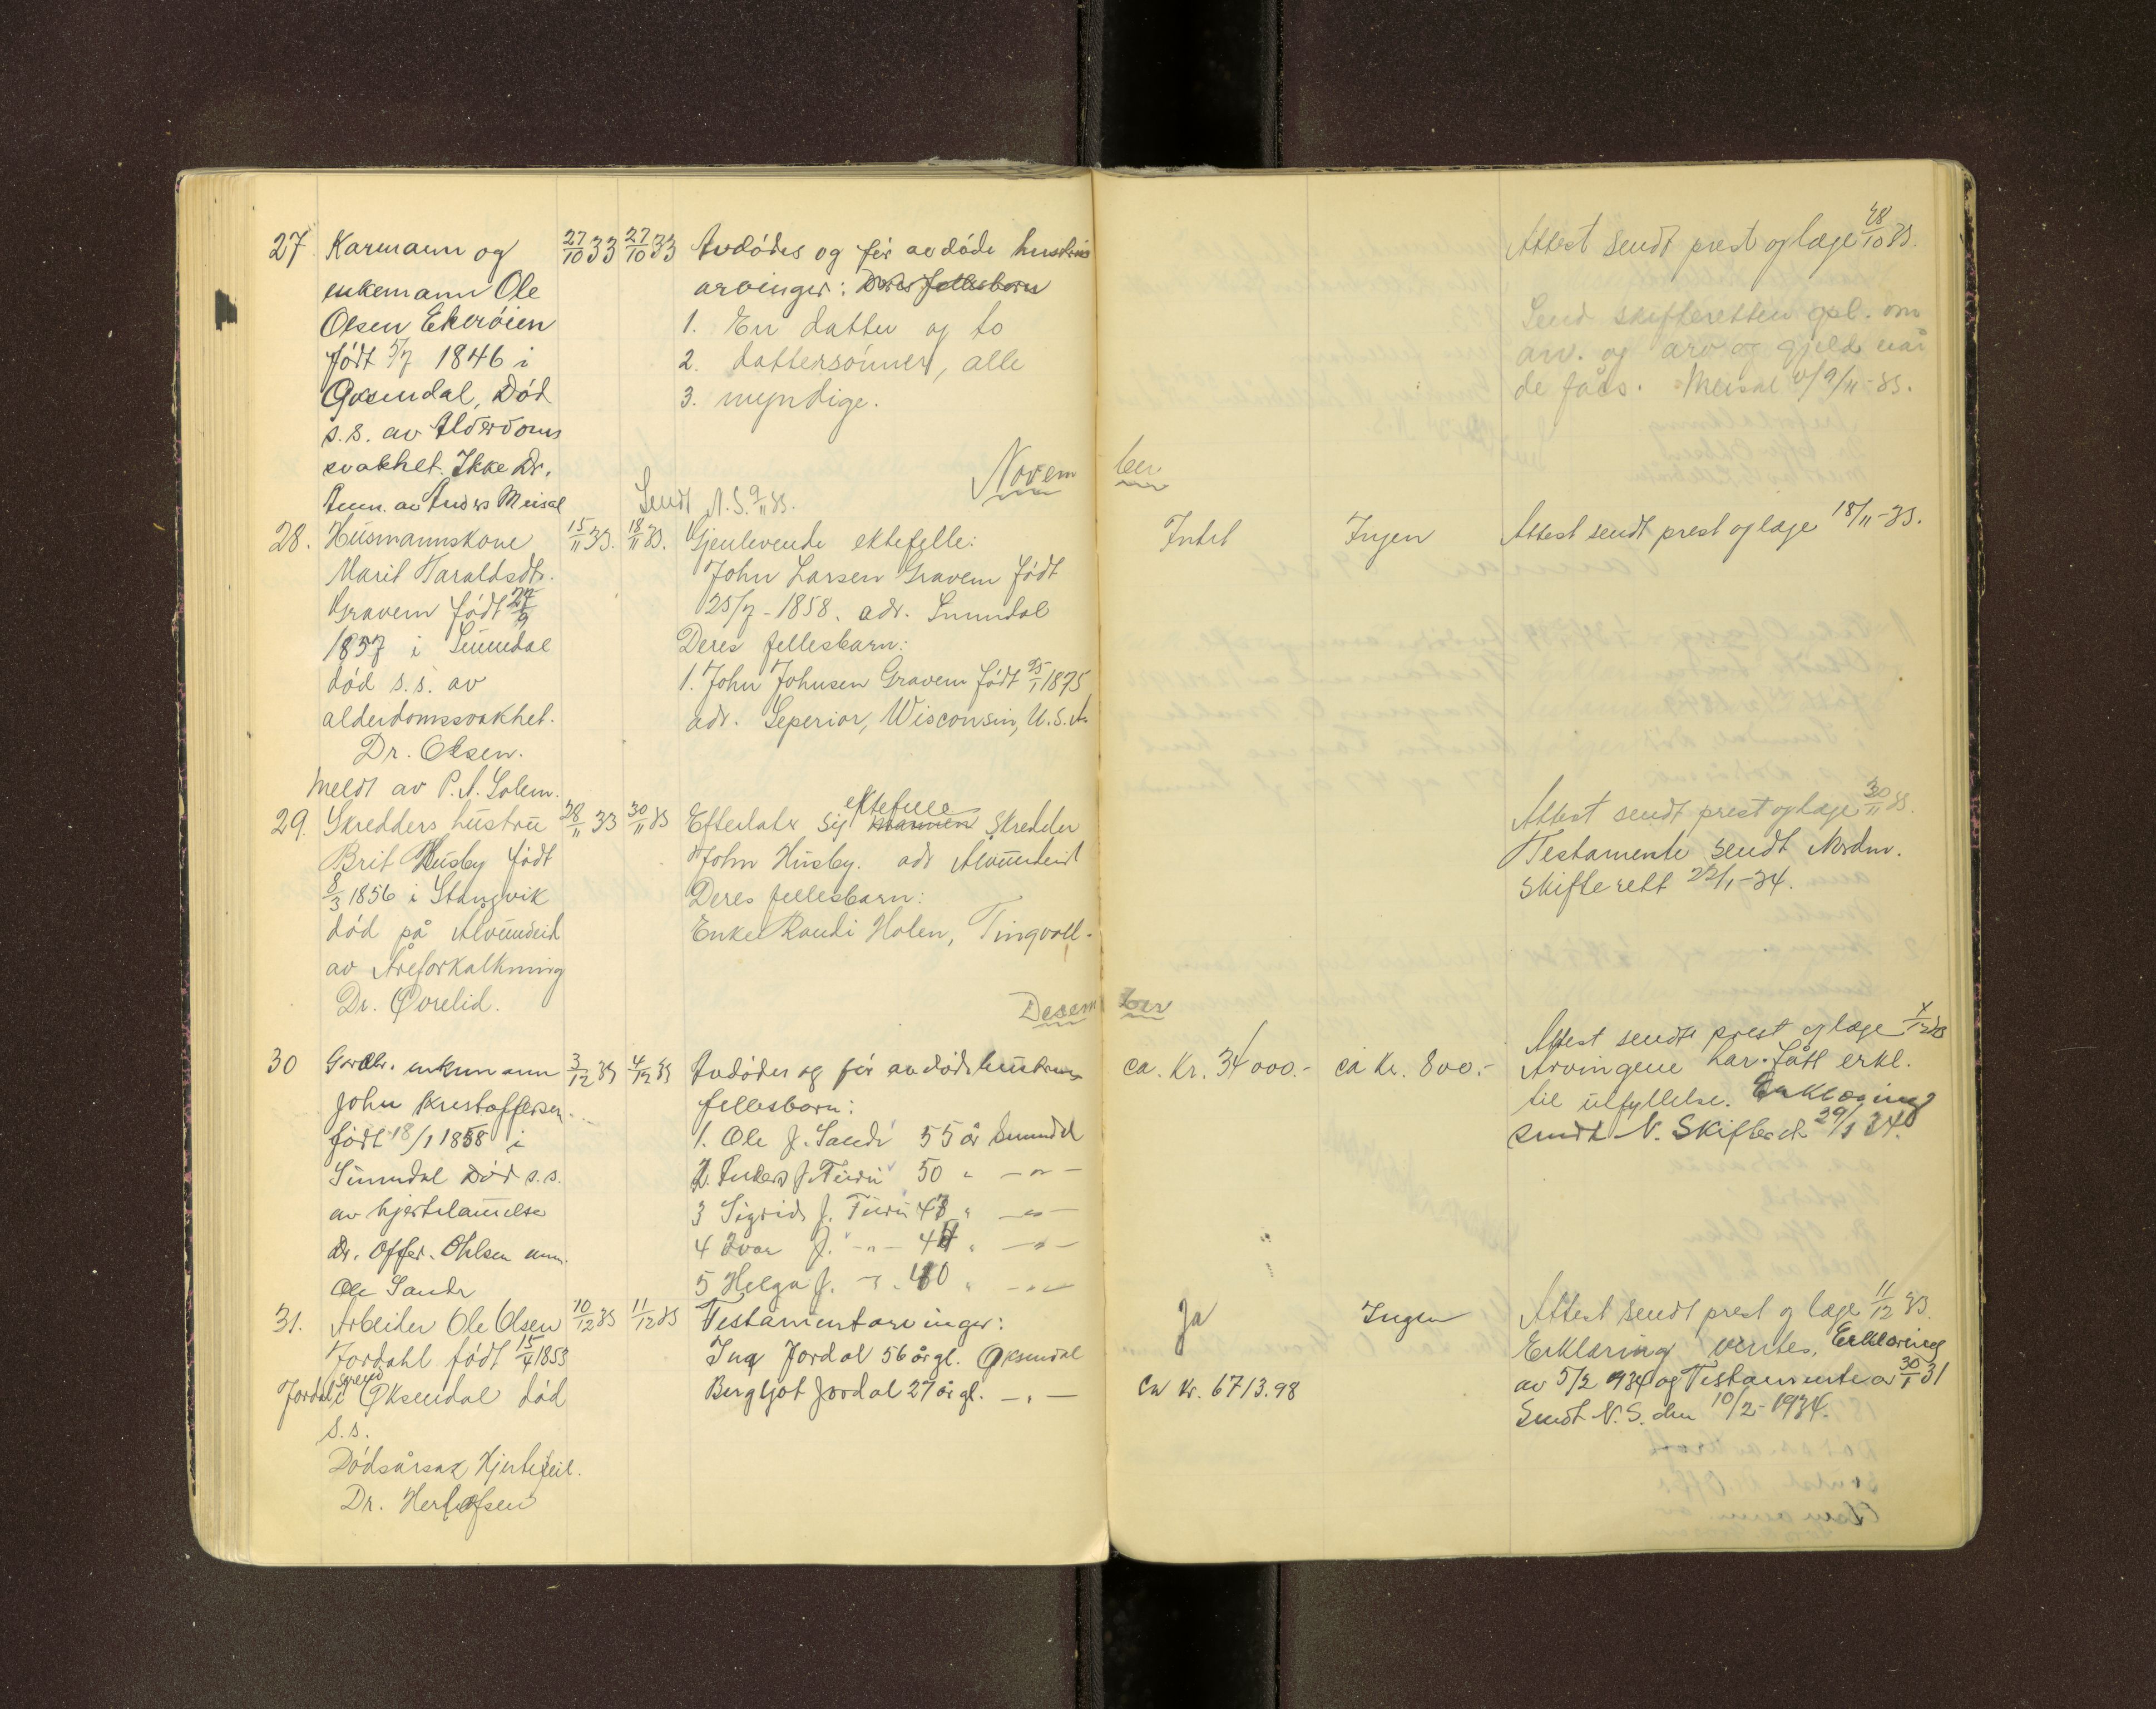 27. Karmann og 27/10 33 27/10 33 Avdødes og før avdøde hustrus Attest sendt prest og læge 28/10 33.
enkemann Ole arvinger: Deres fellesbarn
Olsen Ekerøien 1. En datter og to Send skifteretten opl. om
født 5/7 1846 i 2. dattersønner, alle arv. og arv og gjeld når
Øksendal, Død 3. myndige. de fåes. Meisal 9/11-33.
s.s. av Alderdoms
svakhet. Ikke Dr. November
Anm. av Anders Meisal Sendt N.S. 9/11 33.
28. Husmannskone 15/11 33. 18/11 33. Gjenlevende ektefelle: Intet Ingen Attest sendt prest og læge 18/11-33.
Marit Haraldsdtr. John Larsen Gravem født
Gravem født 27/9 25/7-1858. adr. Sunndal
1857 i Sunndal Deres fellesbarn:
død s.s. av 1. John Johnsen Gravem født 25/1 1875
alderdomssvakhet. adr. Seperior, Wisconsin, U.S.A.
Dr. Olsen.
Meldt av P. A. Solem.
29. Skredders hustru 28/11 33 30/11 33 Efterlater sig mannen ektefelle Skredder Attest sendt prest og læge 30/11 33.
Brit Husby født John Husby. adr Ålvundeid Testamente sendt Nordm.
8/3 1856 i Stangvik Deres fellesbarn: skifterett 22/1-34.
død på Ålvundeid Enke Randi Holen, Tingvoll.
av Åreforkalkning
Dr. Qvrelid.
Desember
30 Gardbr. enkemann 3/12 33 4/12 33 Avdødes og før avdøde hustrus ca. Kr. 34000.- ca Kr. 800.- Attest sendt prest og læge 4/12 33
John Kristoffersen fellesbarn: Arvingene har fått erkl.
født 18/1 1858 i 1. Ole J. Sande 55 år Sunndal til utfyllelse. Erklæring
Sunndal Død s.s. 2. Anders J. Furu 50 " — " — sendt N. Skifterett 29/1 34.
av hjertelammelse 3 Sigrid J. Furu 43 " — " —
Dr. Offer-Ohlsen anm. 4 Ivar J. — " — " — " —
Ole Sande 5 Helga J. — " — 40 " — " —
31. Arbeider Ole Olsen 10/12 33 11/12 33 Testamentarvinger: Ja Ingen Attest sendt prest og læge 11/12 33.
Jordahl født 15/4 1853 Inga Jordal 56 år gl. Øksendal Erklæring ventes, Erklæring
Jordalsgrend i Øksendal død Bergljot Jordal 27 år gl. — " — Ca Kr. 6713.98 av 5/2 1934 og Testamente av 30/1 31
s.s. Sendt N.S. den 10/2-1934.
Dødsårsak Hjertefeil.
Dr. Herlofsen